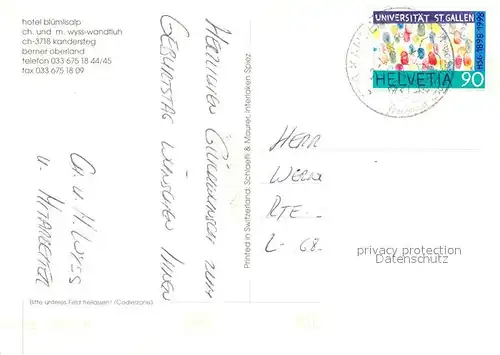 hotel blümlisalp
ch. und m. wyss-wandfluh
ch-3718 kandersteg
berner oberland
telefon 033 675 18 44/45
fax 033 675 18 09
HERZLICHEN GLÜCKWUNSCH ZUM
GEBURTSTAG WÜNSCHEN IHNEN
CH. U. M. WYSS
U. MITARBEITER
Bitte unteres Feld freilassen! (Codierzone)
Printed in Switzerland, Schlaefli & Maurer, Interlaken Spiez
UNIVERSITÄT ST. GALLEN
HSG 1898-1998
HELVETIA 90
HERR
WERN
RTE
L- 68
privacy protection
AKPOOL.DE